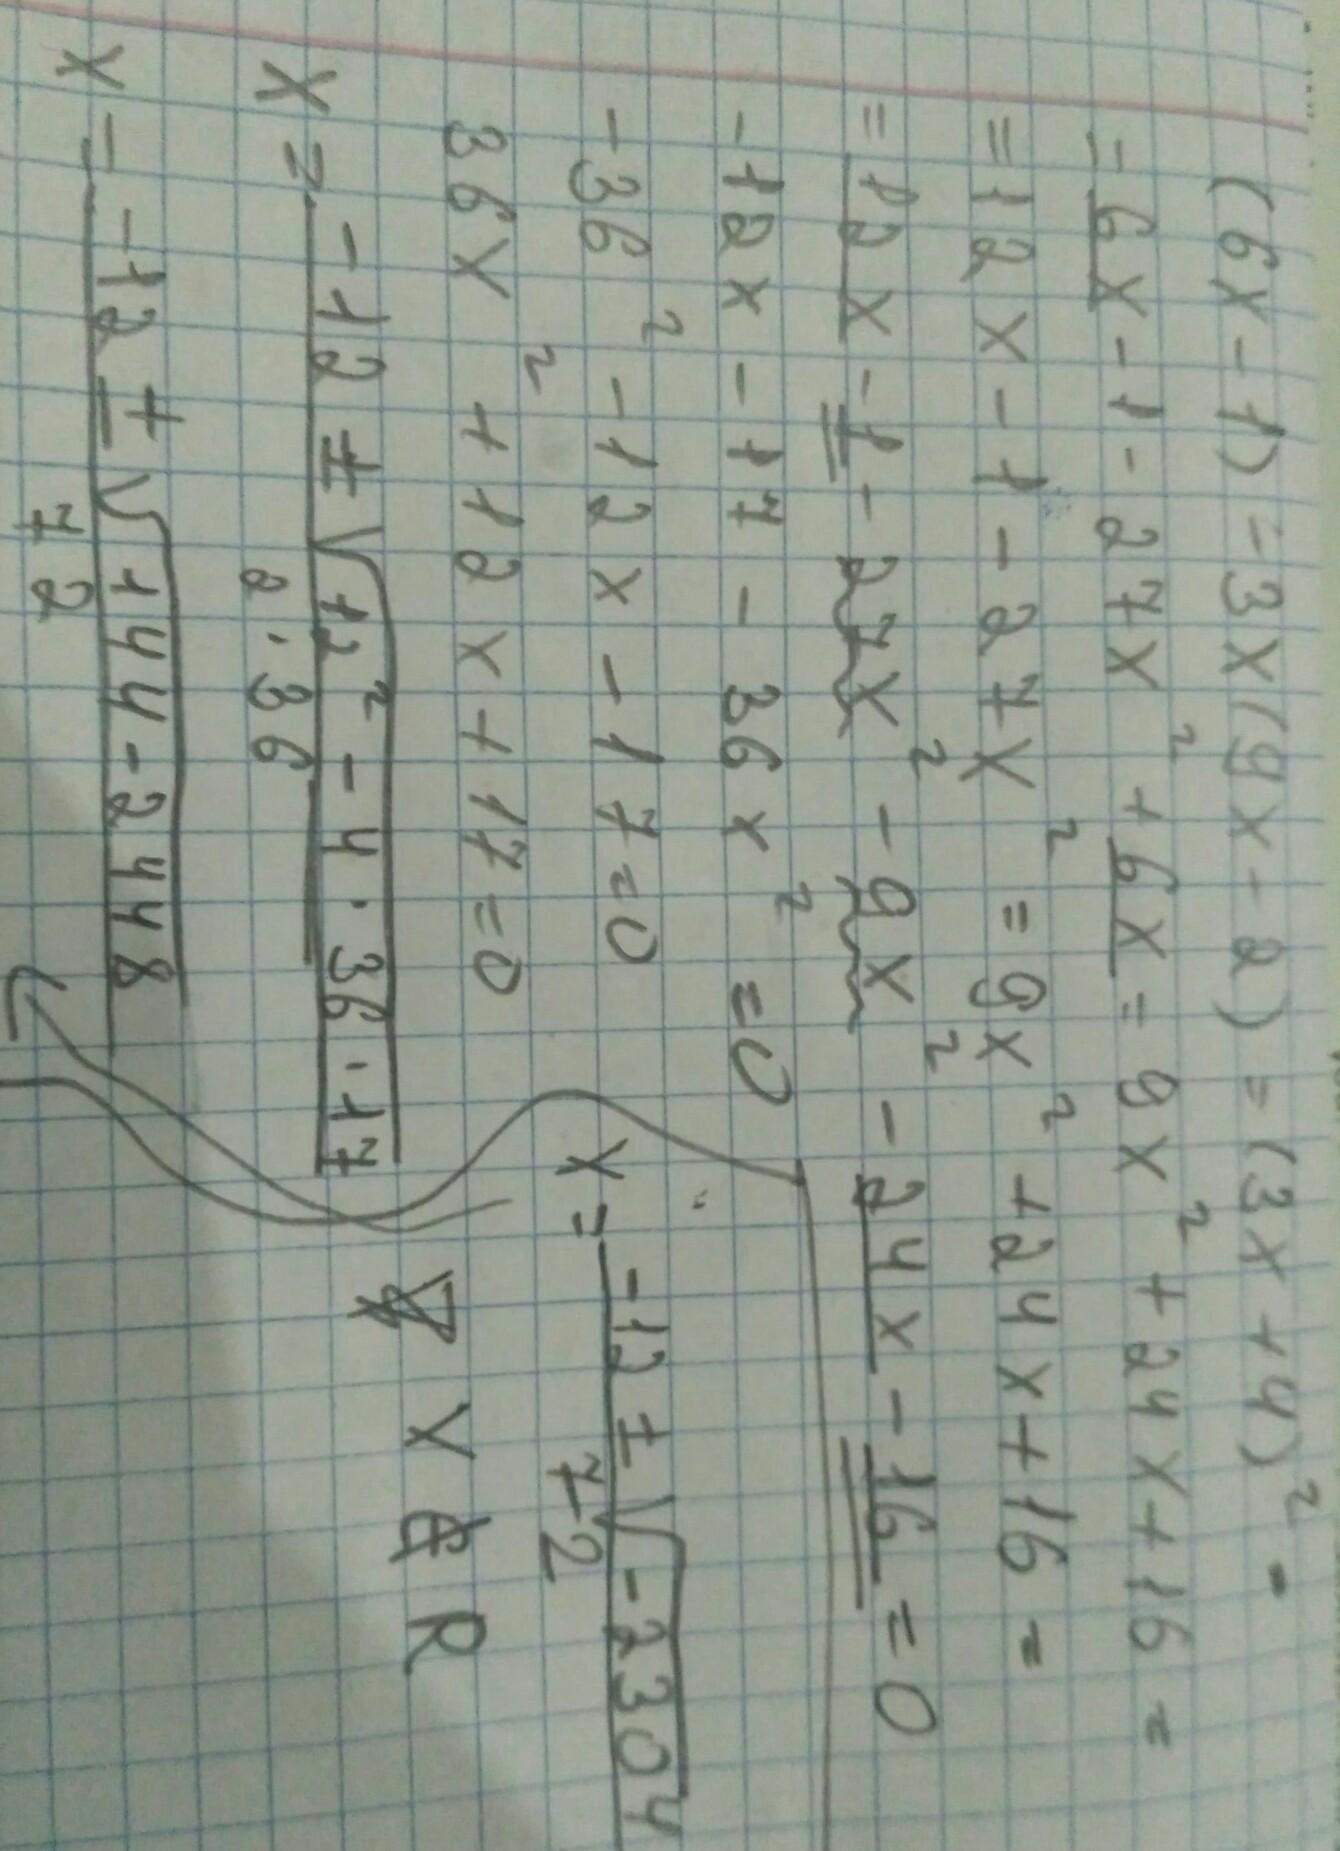 (6x-1)=3x(9x-2)=(3x+4)²-
=6x-1-27x²+6x=9x²+24x+16=
=12x-1-27x²=9x²+24x+16=
=12x-1-27x²-9x²-24x-16=0
-12x-17-36x²=0
-36²-12x-17=0
36x²+12x+17=0
x=-12±√12²-4·36·17
2·36
x=-12±√144-2448
72
x=-12±√-2304
72
x∉R